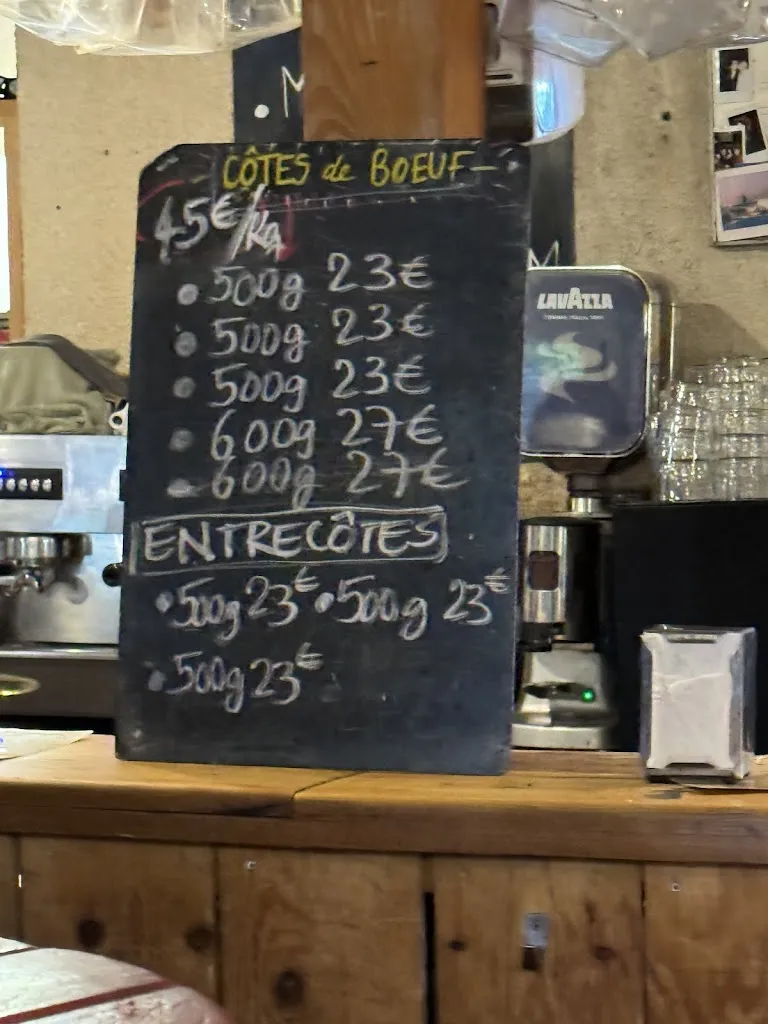 . M
CÔTES de BOEUF -
45€/Kg
• 500g 23€
• 500g 23€
• 500g 23€
• 600g 27€
• 600g 27€
ENTRECÔTES
• 500g 23€ • 500g 23€
• 500g 23€
M
LAVAZZA